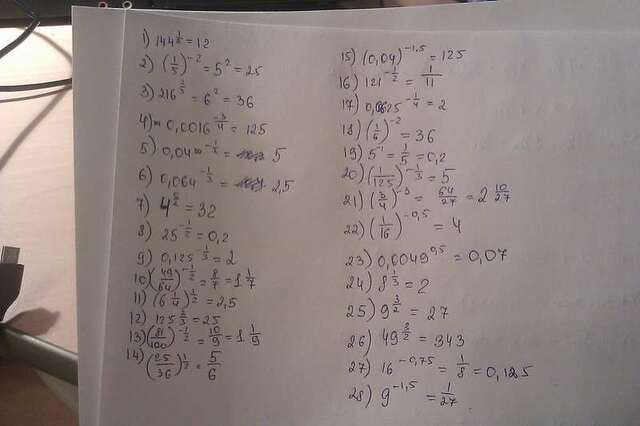 1) 144^(1/2) = 12
2) (1/5)^(-2) = 5^2 = 25
3) 216^(2/3) = 6^2 = 36
4) 0,0016^(-3/4) = 125
5) 0,04^(-1/2) = 5
6) 0,064^(-1/3) = 2,5
7) 4^(5/2) = 32
8) 25^(-1/2) = 0,2
9) 0,125^(-1/3) = 2
10) (49/64)^(-1/2) = 8/7 = 1 1/7
11) (6 1/4)^(1/2) = 2,5
12) 125^(2/3) = 25
13) (81/100)^(-1/2) = 10/9 = 1 1/9
14) (25/36)^(1/2) = 5/6
15) (0,04)^(-1,5) = 125
16) 121^(-1/2) = 1/11
17) 0,0625^(-1/4) = 2
18) (1/6)^(-2) = 36
19) 5^(-1) = 1/5 = 0,2
20) (1/125)^(-1/3) = 5
21) (3/4)^(-3) = 64/27 = 2 10/27
22) (1/16)^(-0,5) = 4
23) 0,0049^(0,5) = 0,07
24) 8^(1/3) = 2
25) 9^(3/2) = 27
26) 49^(3/2) = 343
27) 16^(-0,75) = 1/8 = 0,125
28) 9^(-1,5) = 1/27